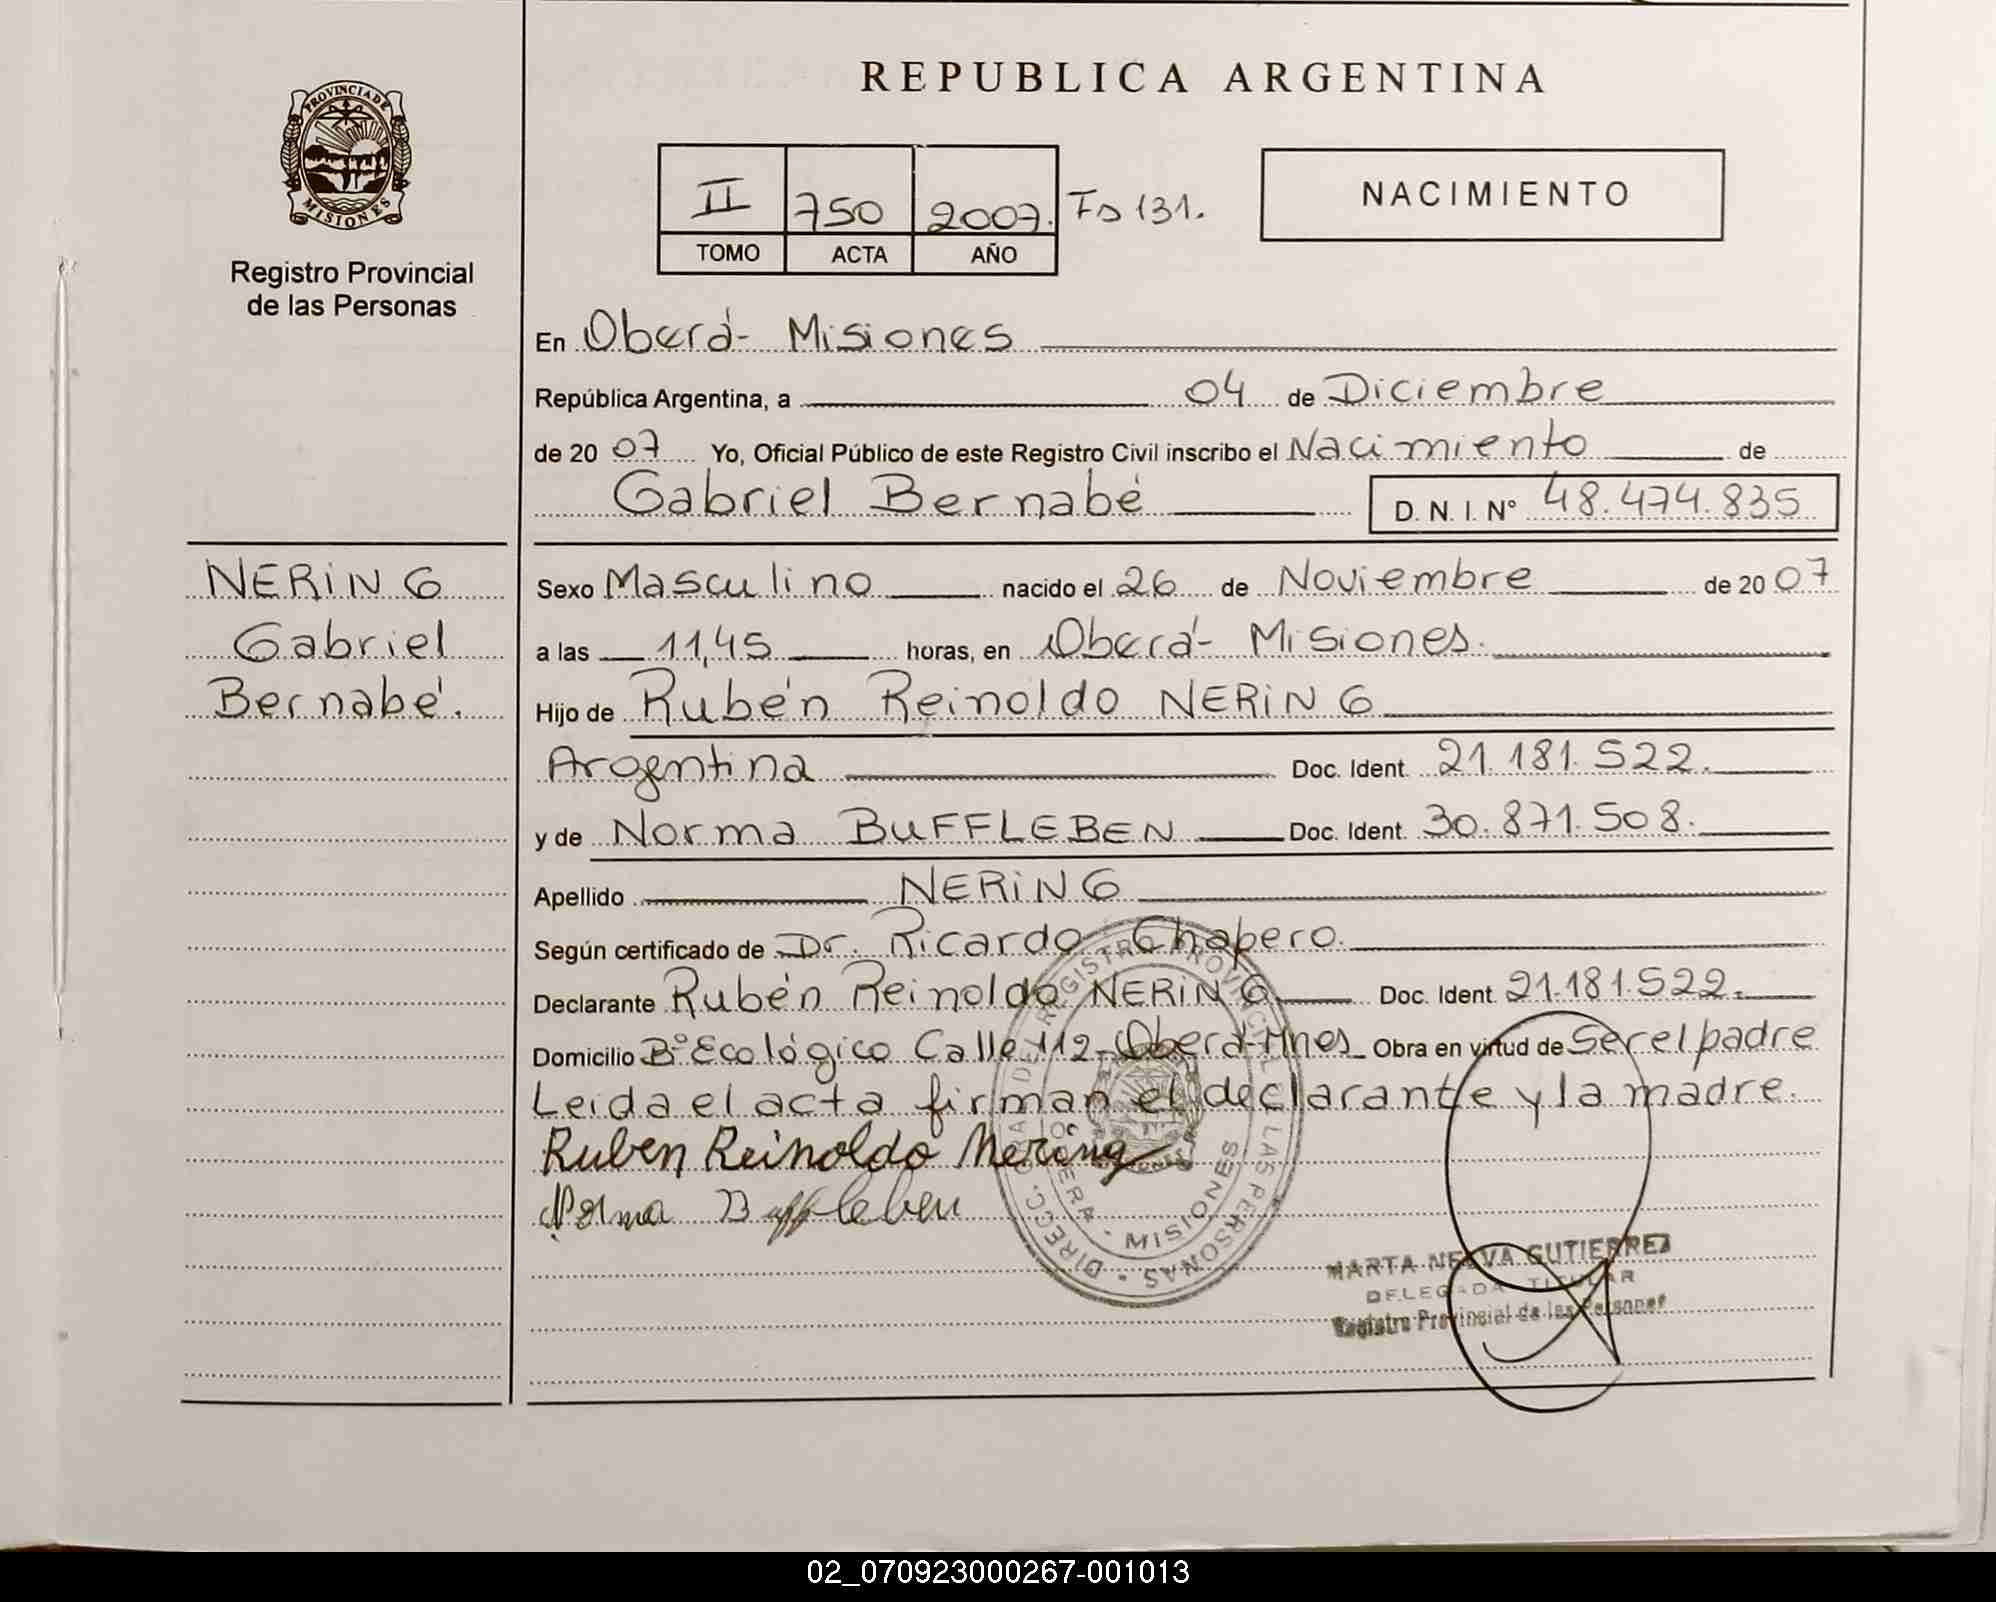 REPUBLICA ARGENTINA
PROVINCIA DE
MISIONES
Registro Provincial
de las Personas
II 750 2007. Fº 131.
TOMO ACTA AÑO
NACIMIENTO
En Oberá - Misiones
República Argentina, a 04 de Diciembre
de 20 07 Yo, Oficial Público de este Registro Civil inscribo el Nacimiento de
Gabriel Bernabé D. N. I. Nº 48.474.835
NERING
Gabriel
Bernabé.
Sexo Masculino nacido el 26 de Noviembre de 20 07
a las 11,45 horas, en Oberá - Misiones.
Hijo de Rubén Reinoldo NERING
Argentina Doc. Ident. 21.181.522.
y de Norma BUFFLEBEN Doc. Ident. 30.871.508.
Apellido NERING
Según certificado de Dr. Ricardo Chapero.
Declarante Rubén Reinoldo NERING Doc. Ident. 21.181.522.
Domicilio Bº Ecológico Calle 112 - Oberá - Mnes Obra en virtud de Ser el padre
Leida el acta firman el declarante y la madre.
Ruben Reinoldo Nering
Norma Buffleben
DIRECC. GRAL. DEL REGISTRO PROVINCIAL DE LAS PERSONAS
MISIONES
MARTA NELVA GUTIERREZ
DELEGADA TITULAR
Registro Provincial de las Personas
02_070923000267-001013